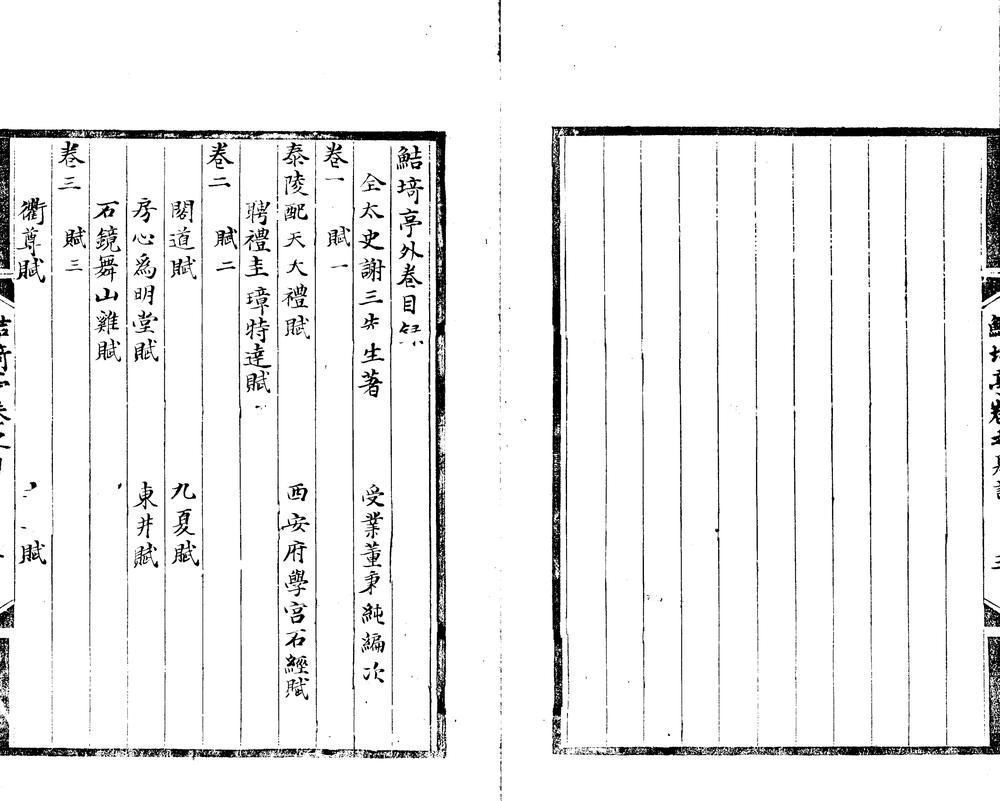 鮚埼亭外卷目
全太史謝三 生著 受業董秉純編次
卷一 賦一
泰陵配天大禮賦 西安府學宮石經賦
聘禮圭璋特達賦
卷二 賦二
閣道賦 九夏賦
房心為明堂賦 東井賦
石鏡舞山雞賦
卷三 賦三
衢尊賦 賦